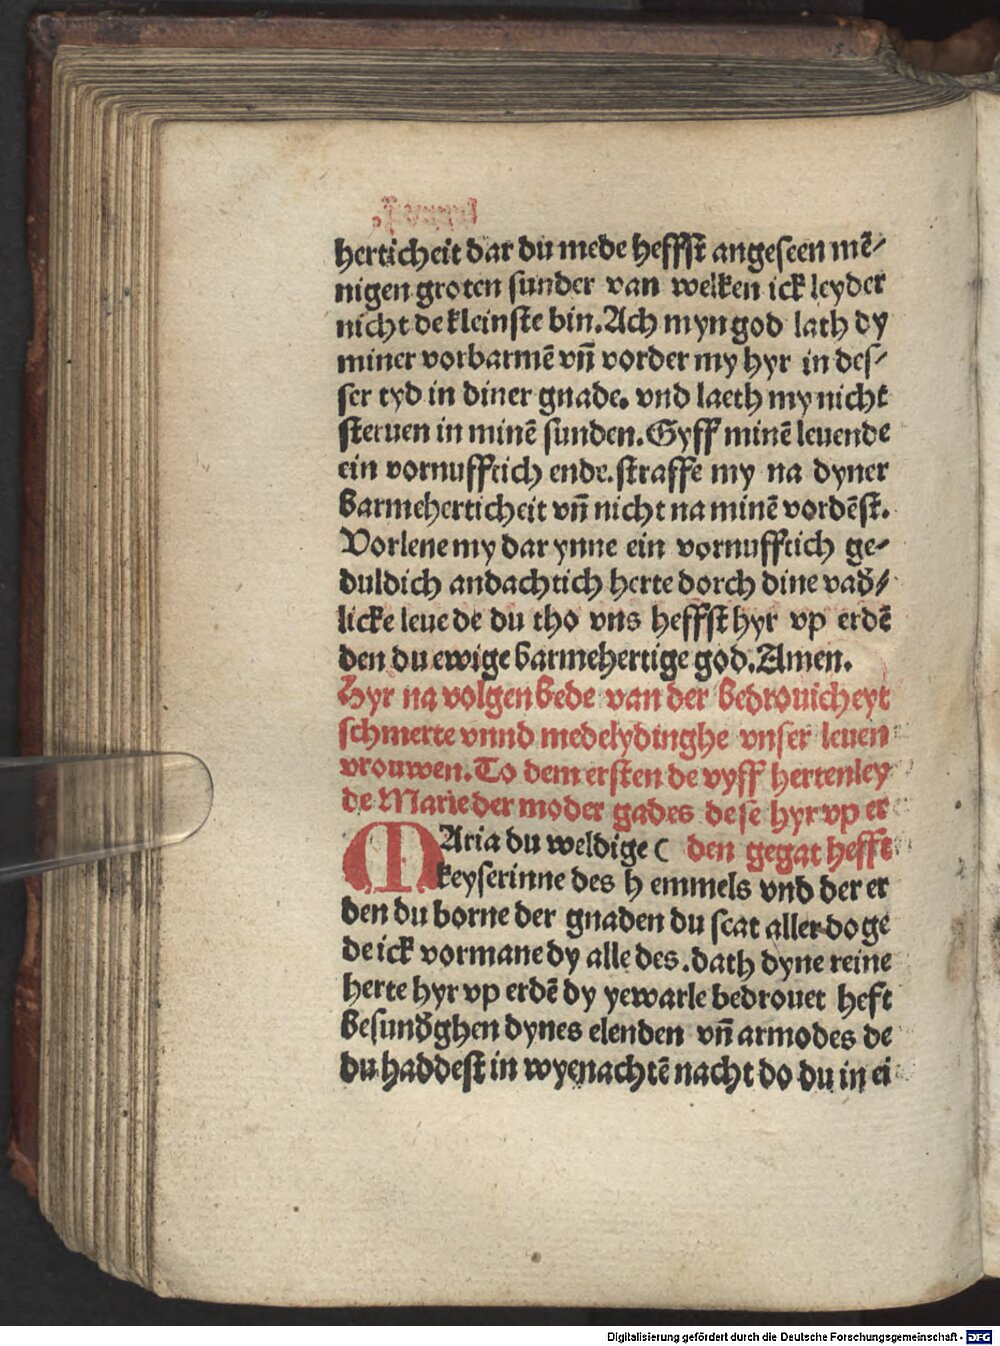 herticheit dar du mede heffst angeseen mē⸗
nigen groten sunder van welken ick leyder
nicht de kleinste bin. Ach myn god lath dy
miner vorbarmē vn̄ vorder my hyr in des⸗
ser tyd in diner gnade. vnd laeth my nicht
steruen in minē sunden. Gyff minē leuende
ein vornufftich ende. straffe my na dyner
barmeherticheit vn̄ nicht na minē vordēst.
Vorlene my dar ynne ein vornufftich ge⸗
duldich andachtich herte dorch dine vad̄⸗
licke leue de du tho vns heffst hyr vp erdē
den du ewige barmehertige god. Amen.
Hyr na volgen bede van der bedrouicheyt
schmerte vnnd medelydinghe vnser leuen
vrouwen. To dem ersten de vyff hertenley
de Marie der moder gades de se hyr vp er
MAria du weldige ( den gegat hefft
keyserinne des h emmels vnd der er
den du borne der gnaden du scat aller doge
de ick vormane dy alle des. dath dyne reine
herte hyr vp erdē dy yewarle bedrouet heft
besund̄ghen dynes elenden vn̄ armodes de
du haddest in wyenachtē nacht do du in ei
Digitalisierung gefördert durch die Deutsche Forschungsgemeinschaft - DFG